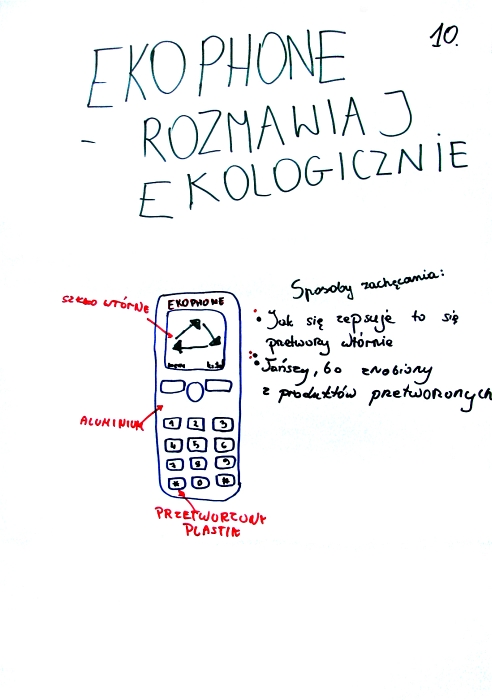 10.
EKOPHONE
- ROZMAWIAJ
EKOLOGICZNIE
Sposoby zachęcania:
• Jak się zepsuje to się
pretwory wtórnie
• Tańszy, bo zrobiony
z produktów pretworzonych
SZKŁO WTÓRNE
EKOPHONE
menu
ALUMINIUM
1 2 3
4 5 6
7 8 9
* 0 #
PRZETWORZONY
PLASTIK